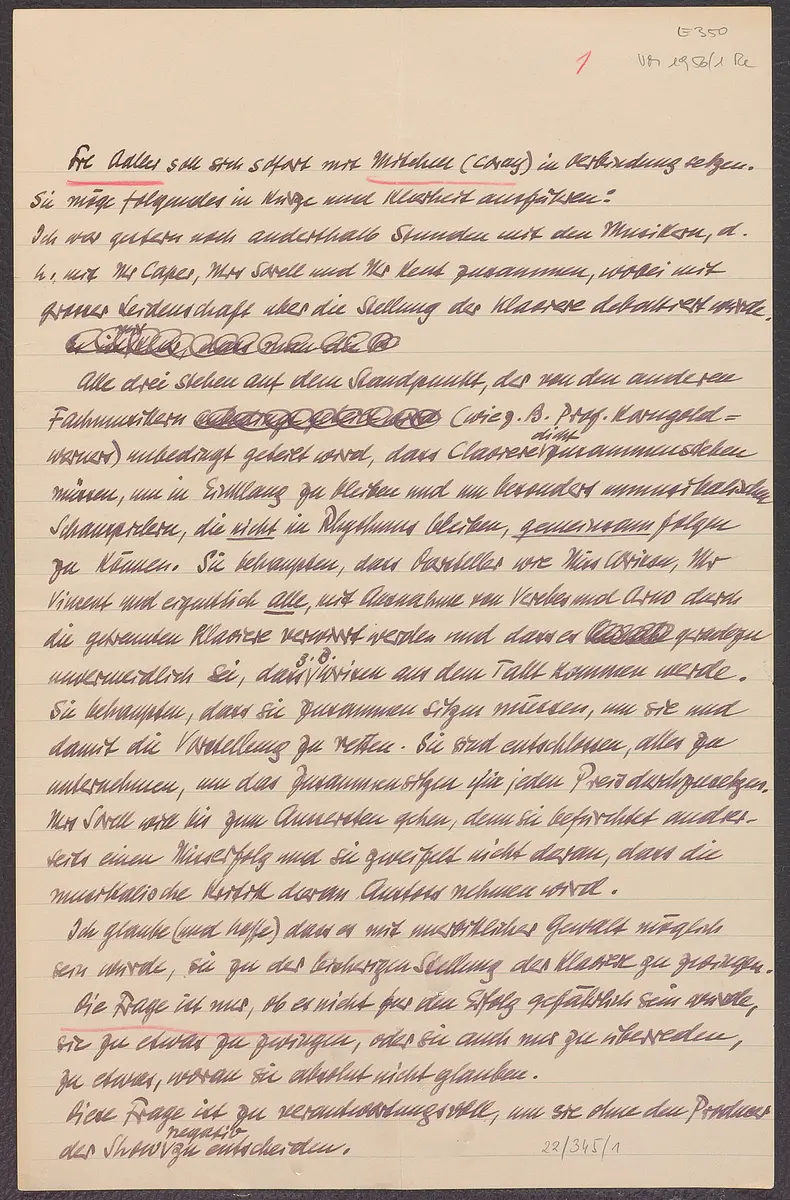 E 350
1
Vm 1956/1 Re
Frl Adler soll sich sofort mit Mitchell (Corey) in Verbindung setzen.
Sie möge folgendes in Kürze und Klarheit ausführen:
Ich war gestern noch anderthalb Stunden mit den Musikern, d.
h., mit Mr Caper, Mrs Sorell und Mr Kent zusammen, wobei mit
grosser Leidenschaft über die Stellung der Klaviere debattiert wurde.
Alle drei stehen auf dem Standpunkt, der von den anderen
Fachmusikern (wie z. B. Prof. Korngold=
werners) unbedingt geteilt wird, dass Claviere dicht zusammenstehen
müssen, um in Einklang zu bleiben und um besonders unmusikalischen
Schauspielern, die nicht in Rhythmus bleiben, gemeinsam folgen
zu können. Sie behaupten, dass Darsteller wie Miss Wrixon, Mr
Vincent und eigentlich alle, mit Ausnahme von Verebes und Arno durch
die getrennten Klaviere verwirrt werden und dass es geradezu
unvermeidlich sei, dass z. B. Wrixon aus dem Takt kommen werde.
Sie behaupten, dass sie zusammen sitzen müssen, um sie und
damit die Vorstellung zu retten. Sie sind entschlossen, alles zu
unternehmen, um das Zusammensitzen für jeden Preis durchzusetzen.
Mrs Sorell wird bis zum Äussersten gehen, denn sie befürchtet andrer-
seits einen Misserfolg und sie zweifelt nicht daran, dass die
musikalische Kritik daran Anstoss nehmen wird.
Ich glaube (und hoffe) dass es mit unerbittlicher Gewalt möglich
sein würde, sie zu der bisherigen Stellung der Klaviere zu zwingen.
Die Frage ist nur, ob es nicht für den Erfolg gefährlich sein würde,
sie zu etwas zu zwingen, oder sie auch nur zu überreden,
zu etwas, woran sie absolut nicht glauben.
Diese Frage ist zu verantwortungsvoll, um sie ohne den Producer
der Show negativ zu entscheiden.
22/345/1